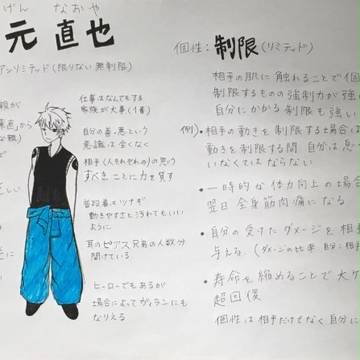 げん なおや
元 直也
アンリミテッド(限りない 無制限)
個性:制限(リミテッド)
仕事はなんでもする
家族が大事(1番)
自分の善・悪という
意識は全くなく
相手(人それぞれの)の思う
すべきことに力を貸す
普段着はツナギ
動きやすさと汚れてもいい
ように
耳のピアスは兄弟の人数分
開けている
ヒーローでもあるが
場合によってヴィランにも
なりえる
相手の肌に触れることで個
制限するものの強制力が強い
自分にかかる制限も強い
例).相手の動きを制限する場合
動きを制限する間 自分は息
いなくてはならない
・一時的な体力向上の場合
翌日全身筋肉痛になる
・自分の受けたダメージを相
与える。(ダメージの比率 自分:相
・寿命を縮めることで大ケ
超回復
個性は相手だけでなく自分に